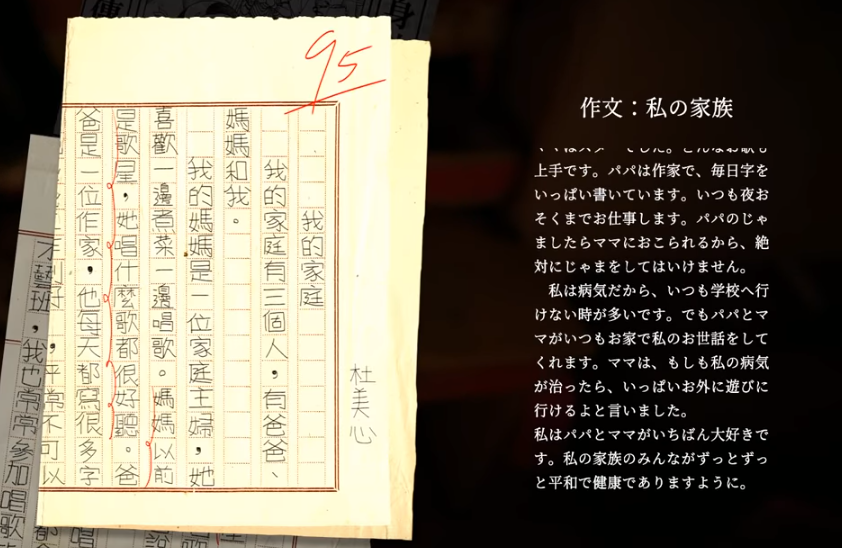 95
杜美心
我的家庭
我的家庭有三個人，有爸爸、
媽媽和我。
我的媽媽是一位家庭主婦，她
喜歡一邊煮菜一邊唱歌。媽媽以前
是歌星，她唱什麼歌都很好聽。爸
爸是一位作家，他每天都寫很多字
才藝班，我也常常參加唱歌
作文：私の家族
上手です。パパは作家で、毎日字を
いっぱい書いています。いつも夜お
そくまでお仕事します。パパのじゃ
ましたらママにおこられるから、絶
対にじゃまをしてはいけません。
私は病気だから、いつも学校へ行
けない時が多いです。でもパパとマ
マがいつもお家で私のお世話をして
くれます。ママは、もしも私の病気
が治ったら、いっぱいお外に遊びに
行けるよと言いました。
私はパパとママがいちばん大好きで
す。私の家族のみんながずっとずっ
と平和で健康でありますように。